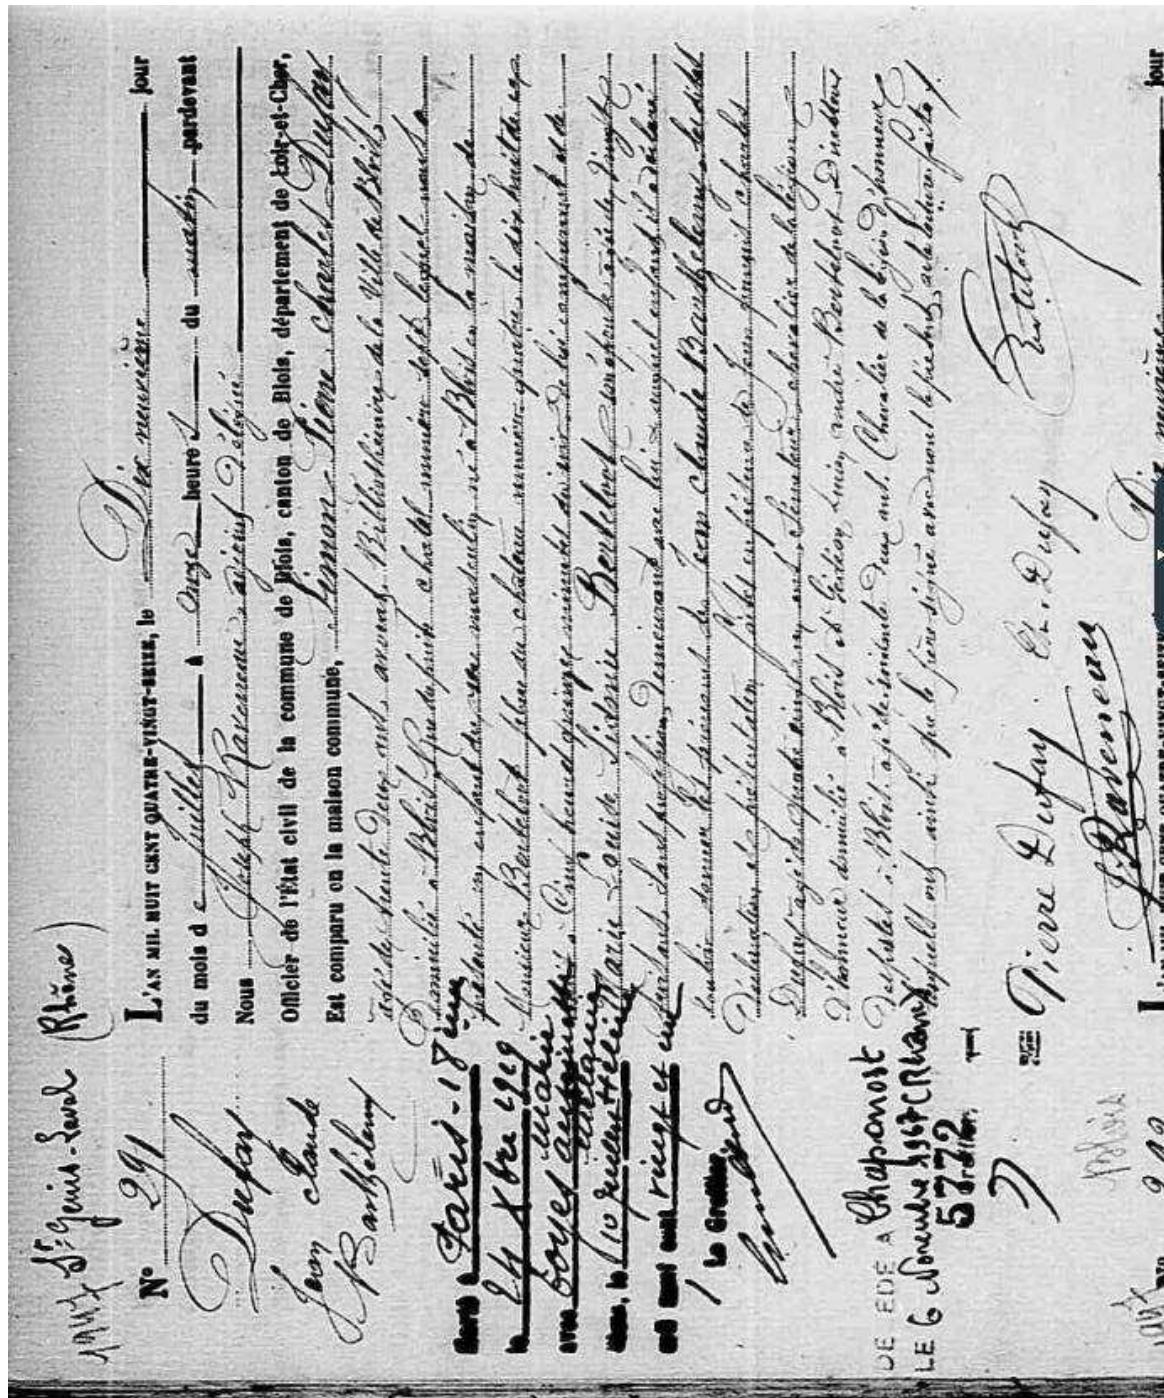 1947 St Genis-Laval (Rhône)
N° 291
Dufay
Jean Claude
Barthélemy
Marié à Paris-18ème
le 24 Xbre 1929
avec
Maire, le 10 juillet
mil neuf cent vingt et un
Le Greffier,
DÉCÉDÉ A Chaponost
LE 6 Novembre 1967 (Rhône)
5772
L'AN MIL HUIT CENT QUATRE-VINGT-SEIZE, le Dix neuvième jour
du mois de Juillet à Onze heures du matin pardevant
Nous Joseph Raveneau adjoint Délégué
Officier de l'État civil de la commune de Blois, canton de Blois, département de Loir-et-Cher,
Est comparu en la maison commune, Simon Pierre Charles Dufay
âgé de trente Deux ans, Bibliothécaire de la Ville de Blois,
Domicilié à Blois, Rue du puits chatel numéro sept, lequel nous a
présenté un enfant du sexe masculin né à Blois en la maison de
Monsieur Bertelot, rue du château numéro quatre, le dix huit de ce
mois à cinq heures quinze minutes du soir de lui comparant et de
Marie Louise Bertelot son épouse âgée de vingt
ans, sans profession, demeurant avec lui, auquel enfant il a déclaré
vouloir donner les prénoms de Jean Claude Barthélemy. Lesdites
Déclaration et présentation faites en présence de Jean François Charles
Dufay âgé de quatre vingt un ans, Sénateur, chevalier de la légion
d'honneur domicilié à Blois et Lucien André Bertelot, Directeur
ans, Chevalier de la légion d'honneur
lesquels ont ainsi que le père signé avec nous le présent acte lecture faite.
Pierre Dufay Ch. Dufay Bertelot
J. Raveneau
Blois
1947
N° 292
L'AN MIL HUIT CENT QUATRE-VINGT-SEIZE, Dix neuvième jour